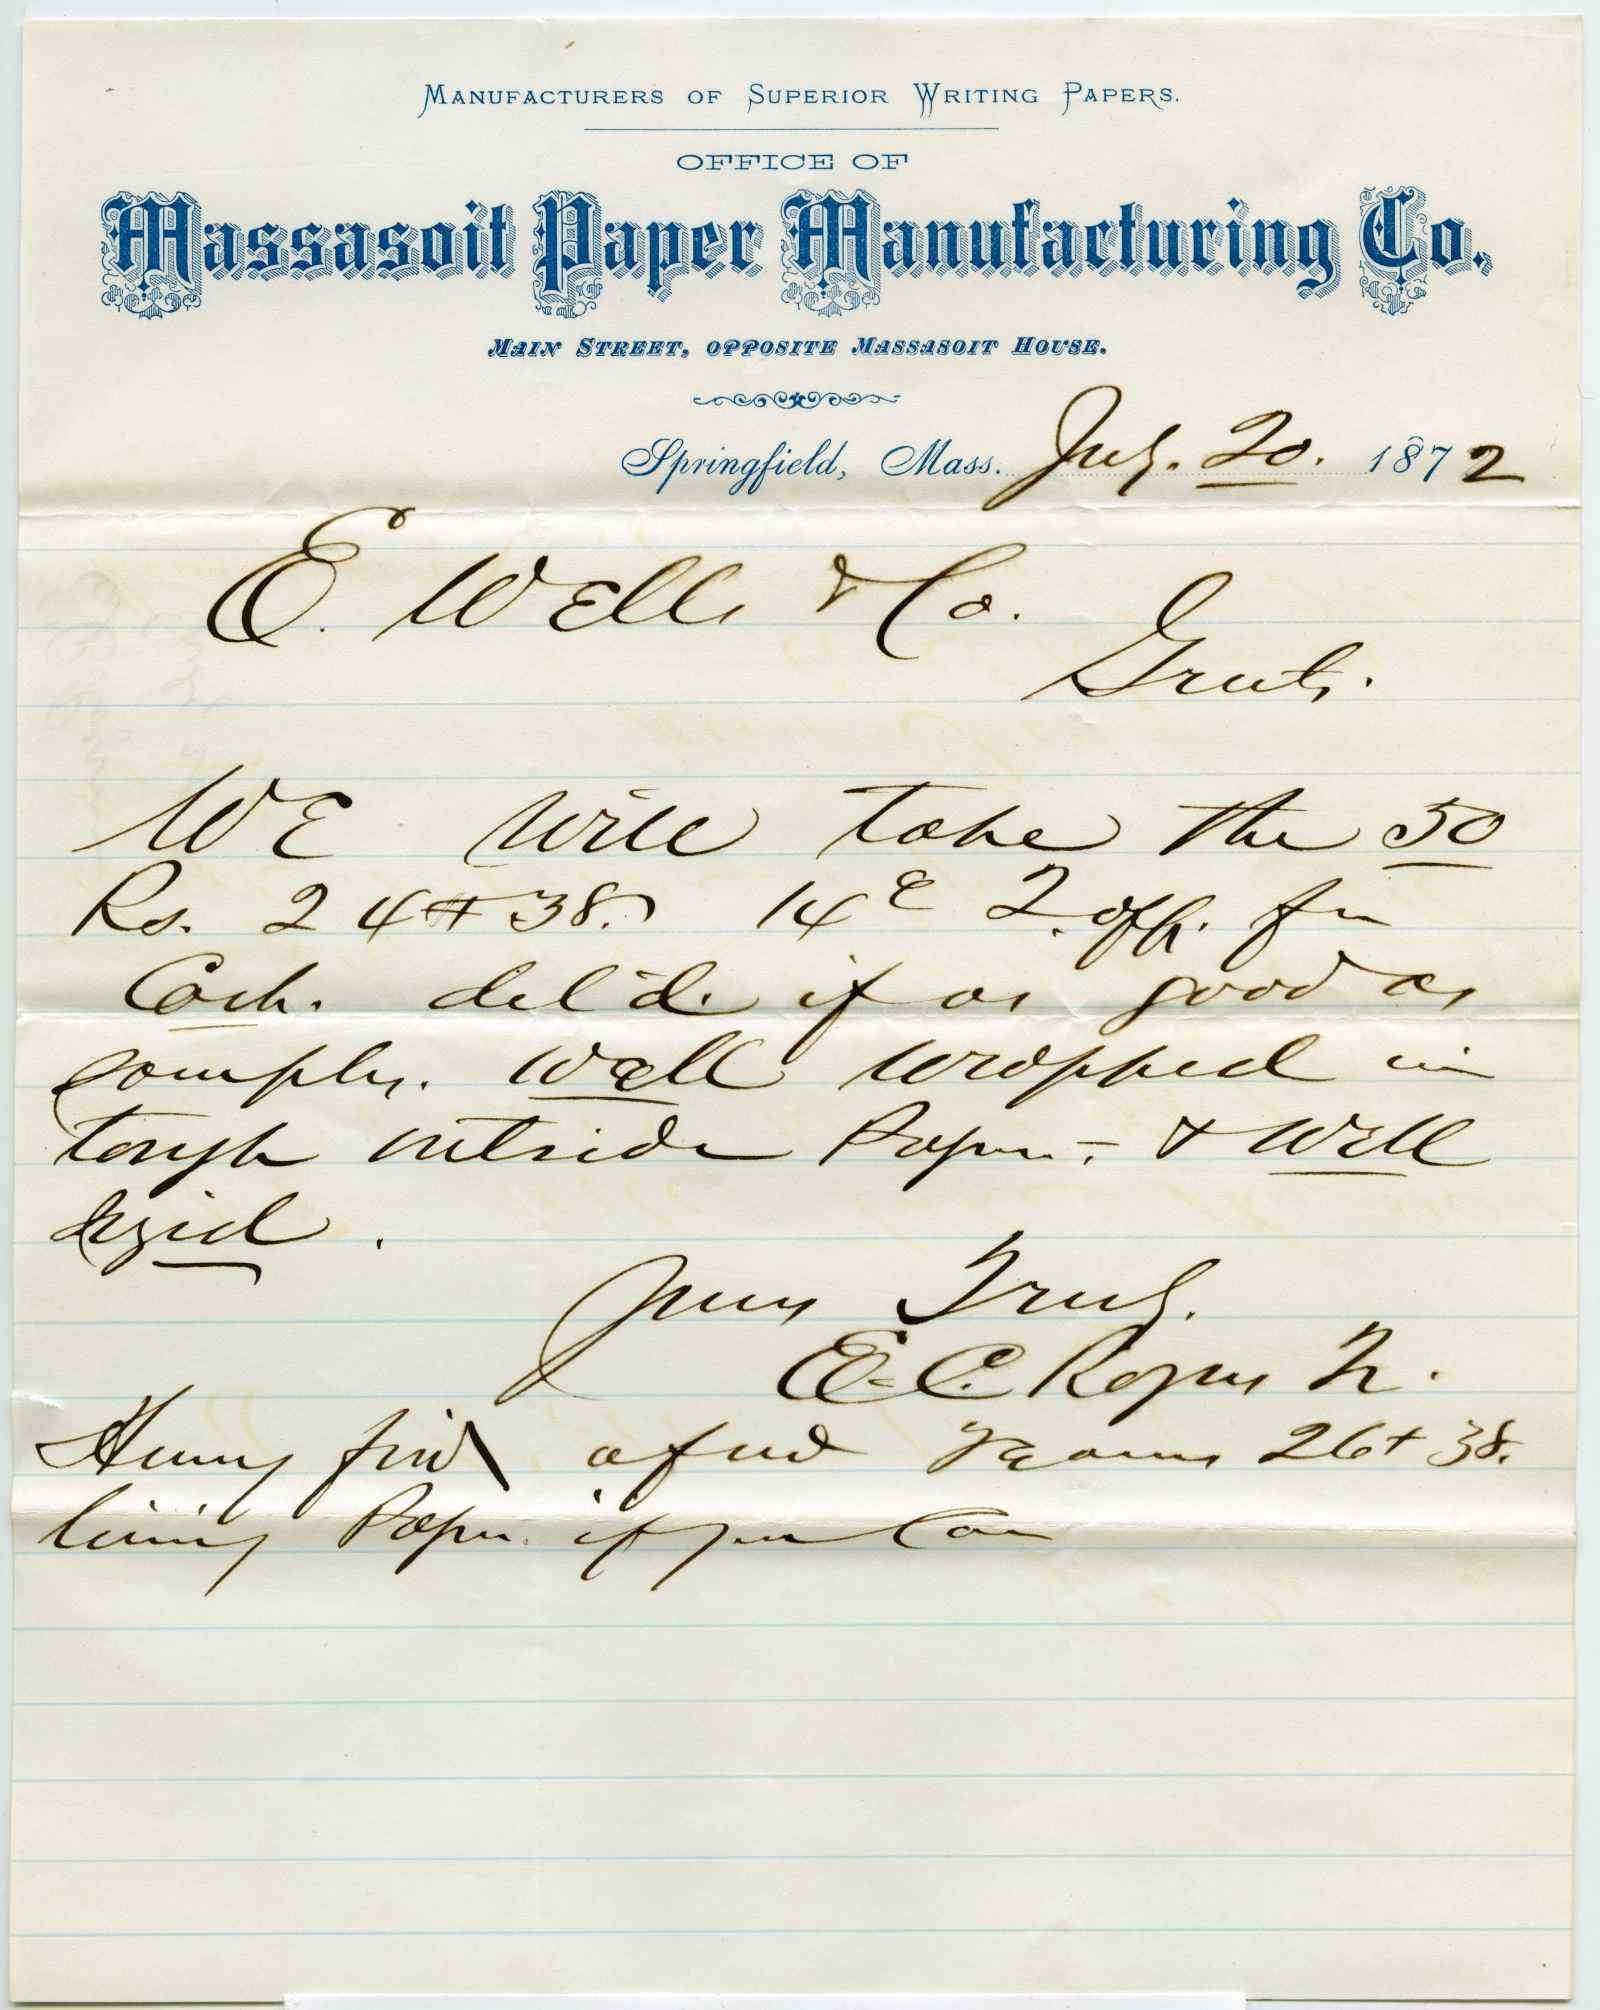 MANUFACTURERS OF SUPERIOR WRITING PAPERS.
OFFICE OF
Massasoit Paper Manufacturing Co.
MAIN STREET, OPPOSITE MASSASOIT HOUSE.
Springfield, Mass. July. 20. 1872
E. Wells & Co.
Gents.
We will take the 50
Rs. 24 + 38. 14c 2. off. for
Cash. del'd. if as good as
sample. Well wrapped in
tough outside Paper - & Well
Yours Truly.
E. C. Rogers Tr.
find a few Reams 26 + 38.
lining Paper. if you Can